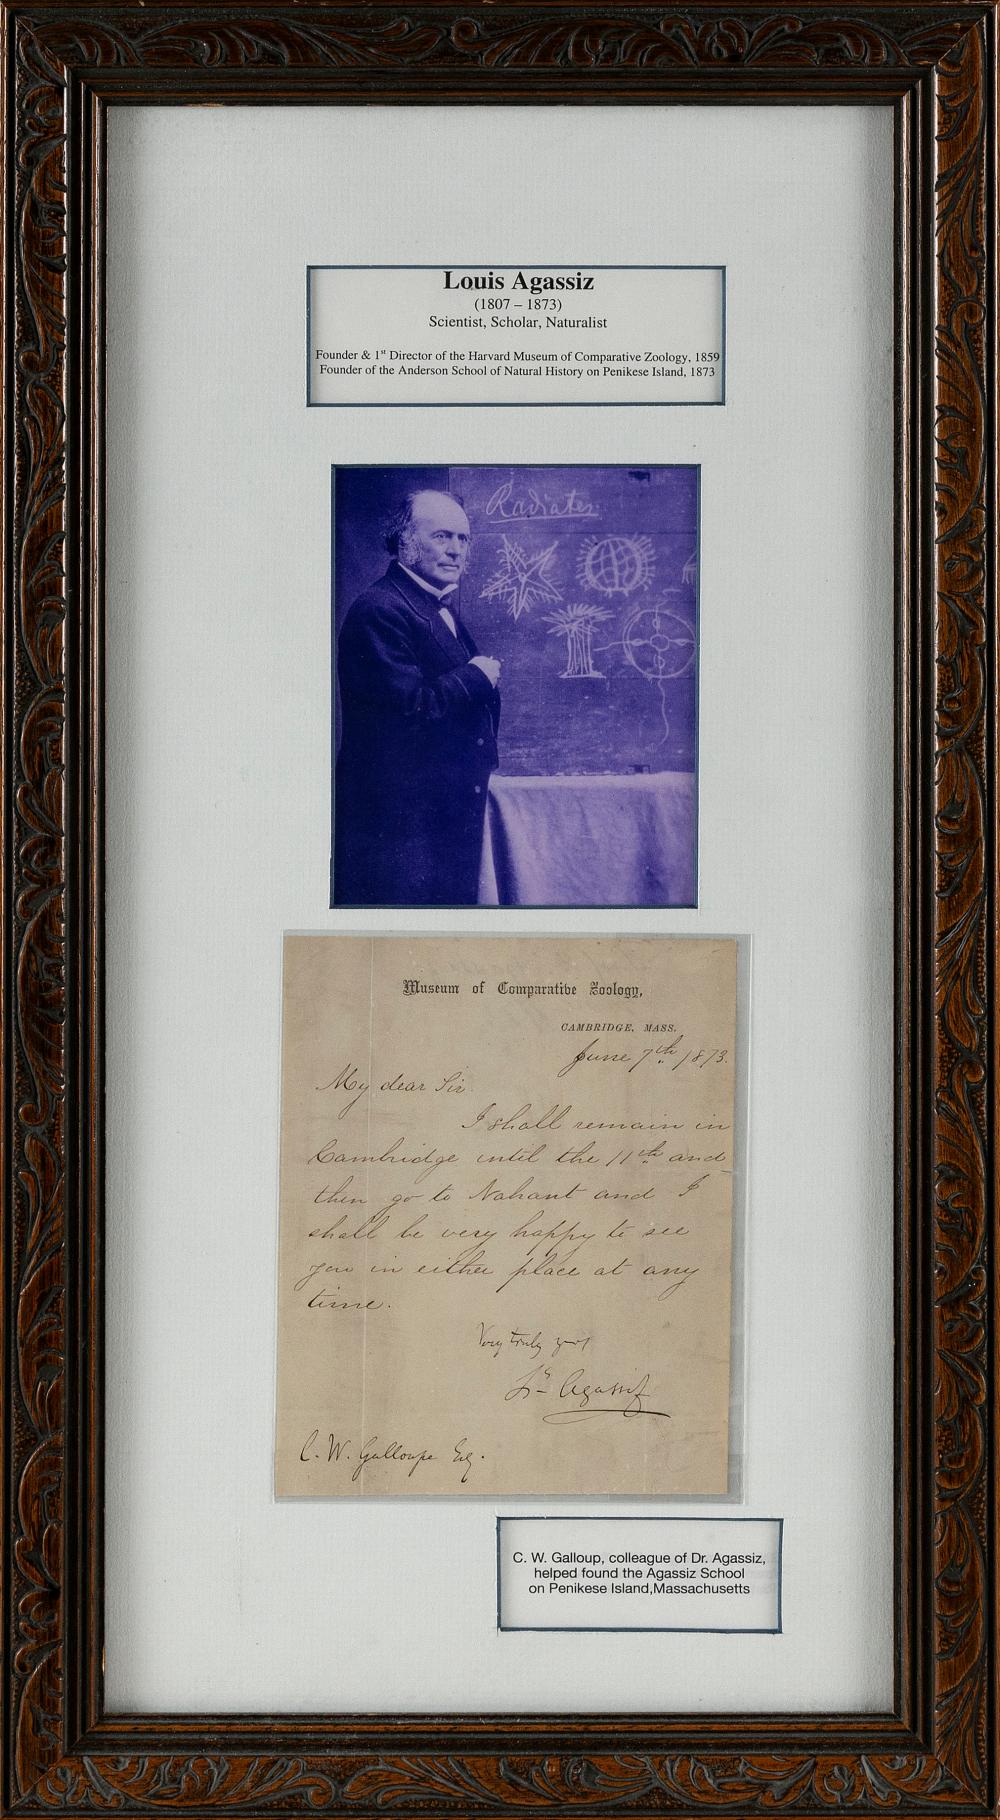 Louis Agassiz
(1807 – 1873)
Scientist, Scholar, Naturalist
Founder & 1st Director of the Harvard Museum of Comparative Zoology, 1859
Founder of the Anderson School of Natural History on Penikese Island, 1873
Radiates
Museum of Comparative Zoology,
CAMBRIDGE, MASS.
June 7th 1873.
My dear Sir.
I shall remain in
Cambridge until the 11th and
then go to Nahant and I
shall be very happy to see
you in either place at any
time.
Very truly yours
Ls Agassiz
C. W. Galloupe Esq.
C. W. Galloup, colleague of Dr. Agassiz,
helped found the Agassiz School
on Penikese Island,Massachusetts